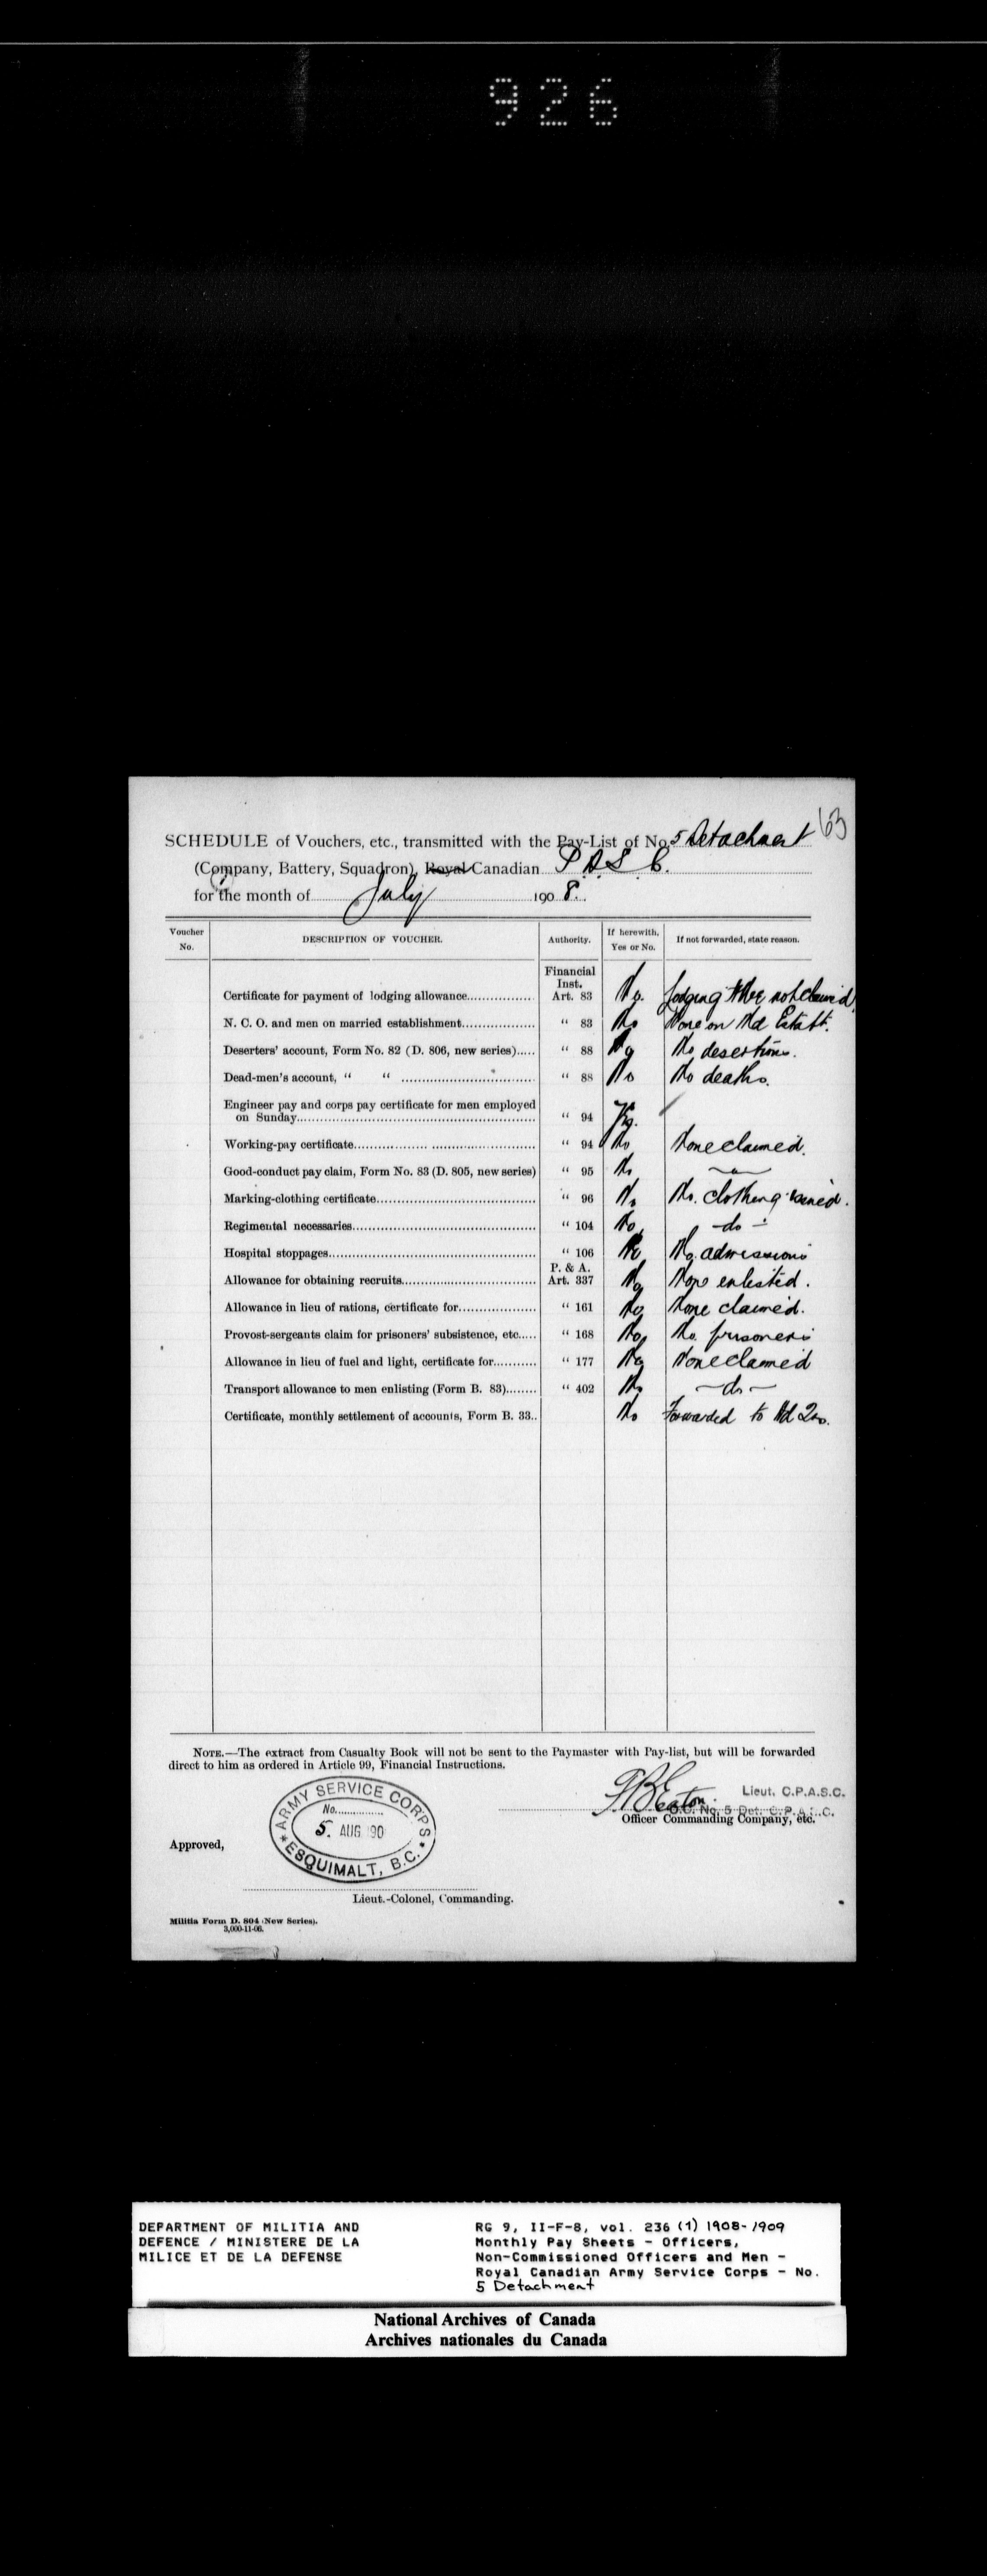 926
63
SCHEDULE of Vouchers, etc., transmitted with the Pay-List of No. 5 Detachment
(Company, Battery, Squadron), Royal Canadian P.A.S.C.
for the month of July 1908.
Voucher No. DESCRIPTION OF VOUCHER. Authority. If herewith, Yes or No. If not forwarded, state reason.
Financial Inst.
Certificate for payment of lodging allowance Art. 83 No. Lodging not claimed.
N. C. O. and men on married establishment " 83 No None on Md Estabt.
Deserters' account, Form No. 82 (D. 806, new series) " 88 No No desertions.
Dead-men's account, " " " 88 No No deaths.
Engineer pay and corps pay certificate for men employed
on Sunday " 94
Working-pay certificate " 94 No None claimed.
Good-conduct pay claim, Form No. 83 (D. 805, new series) " 95 No
Marking-clothing certificate " 96 No No clothing issued.
Regimental necessaries " 104 No - do -
Hospital stoppages " 106 No No admissions
P. & A.
Allowance for obtaining recruits Art. 337 No None enlisted.
Allowance in lieu of rations, certificate for " 161 No None claimed.
Provost-sergeants claim for prisoners' subsistence, etc. " 168 No No prisoners
Allowance in lieu of fuel and light, certificate for " 177 No None claimed
Transport allowance to men enlisting (Form B. 83) " 402 No - do -
Certificate, monthly settlement of accounts, Form B. 33.. No Forwarded to Hd Qrs.
NOTE.—The extract from Casualty Book will not be sent to the Paymaster with Pay-list, but will be forwarded
direct to him as ordered in Article 99, Financial Instructions.
ARMY SERVICE CORPS
No.
5. AUG 90
ESQUIMALT, B.C.
Eaton. Lieut. C.P.A.S.C.
O.C. No. 5 Det. C.P.A.S.C.
Officer Commanding Company, etc.
Approved,
Lieut.-Colonel, Commanding.
Militia Form D. 804 (New Series).
3,000-11-06.
DEPARTMENT OF MILITIA AND
DEFENCE / MINISTERE DE LA
MILICE ET DE LA DEFENSE
RG 9, II-F-8, vol. 236 (1) 1908-1909
Monthly Pay Sheets - Officers,
Non-Commissioned Officers and Men -
Royal Canadian Army Service Corps - No.
5 Detachment
National Archives of Canada
Archives nationales du Canada